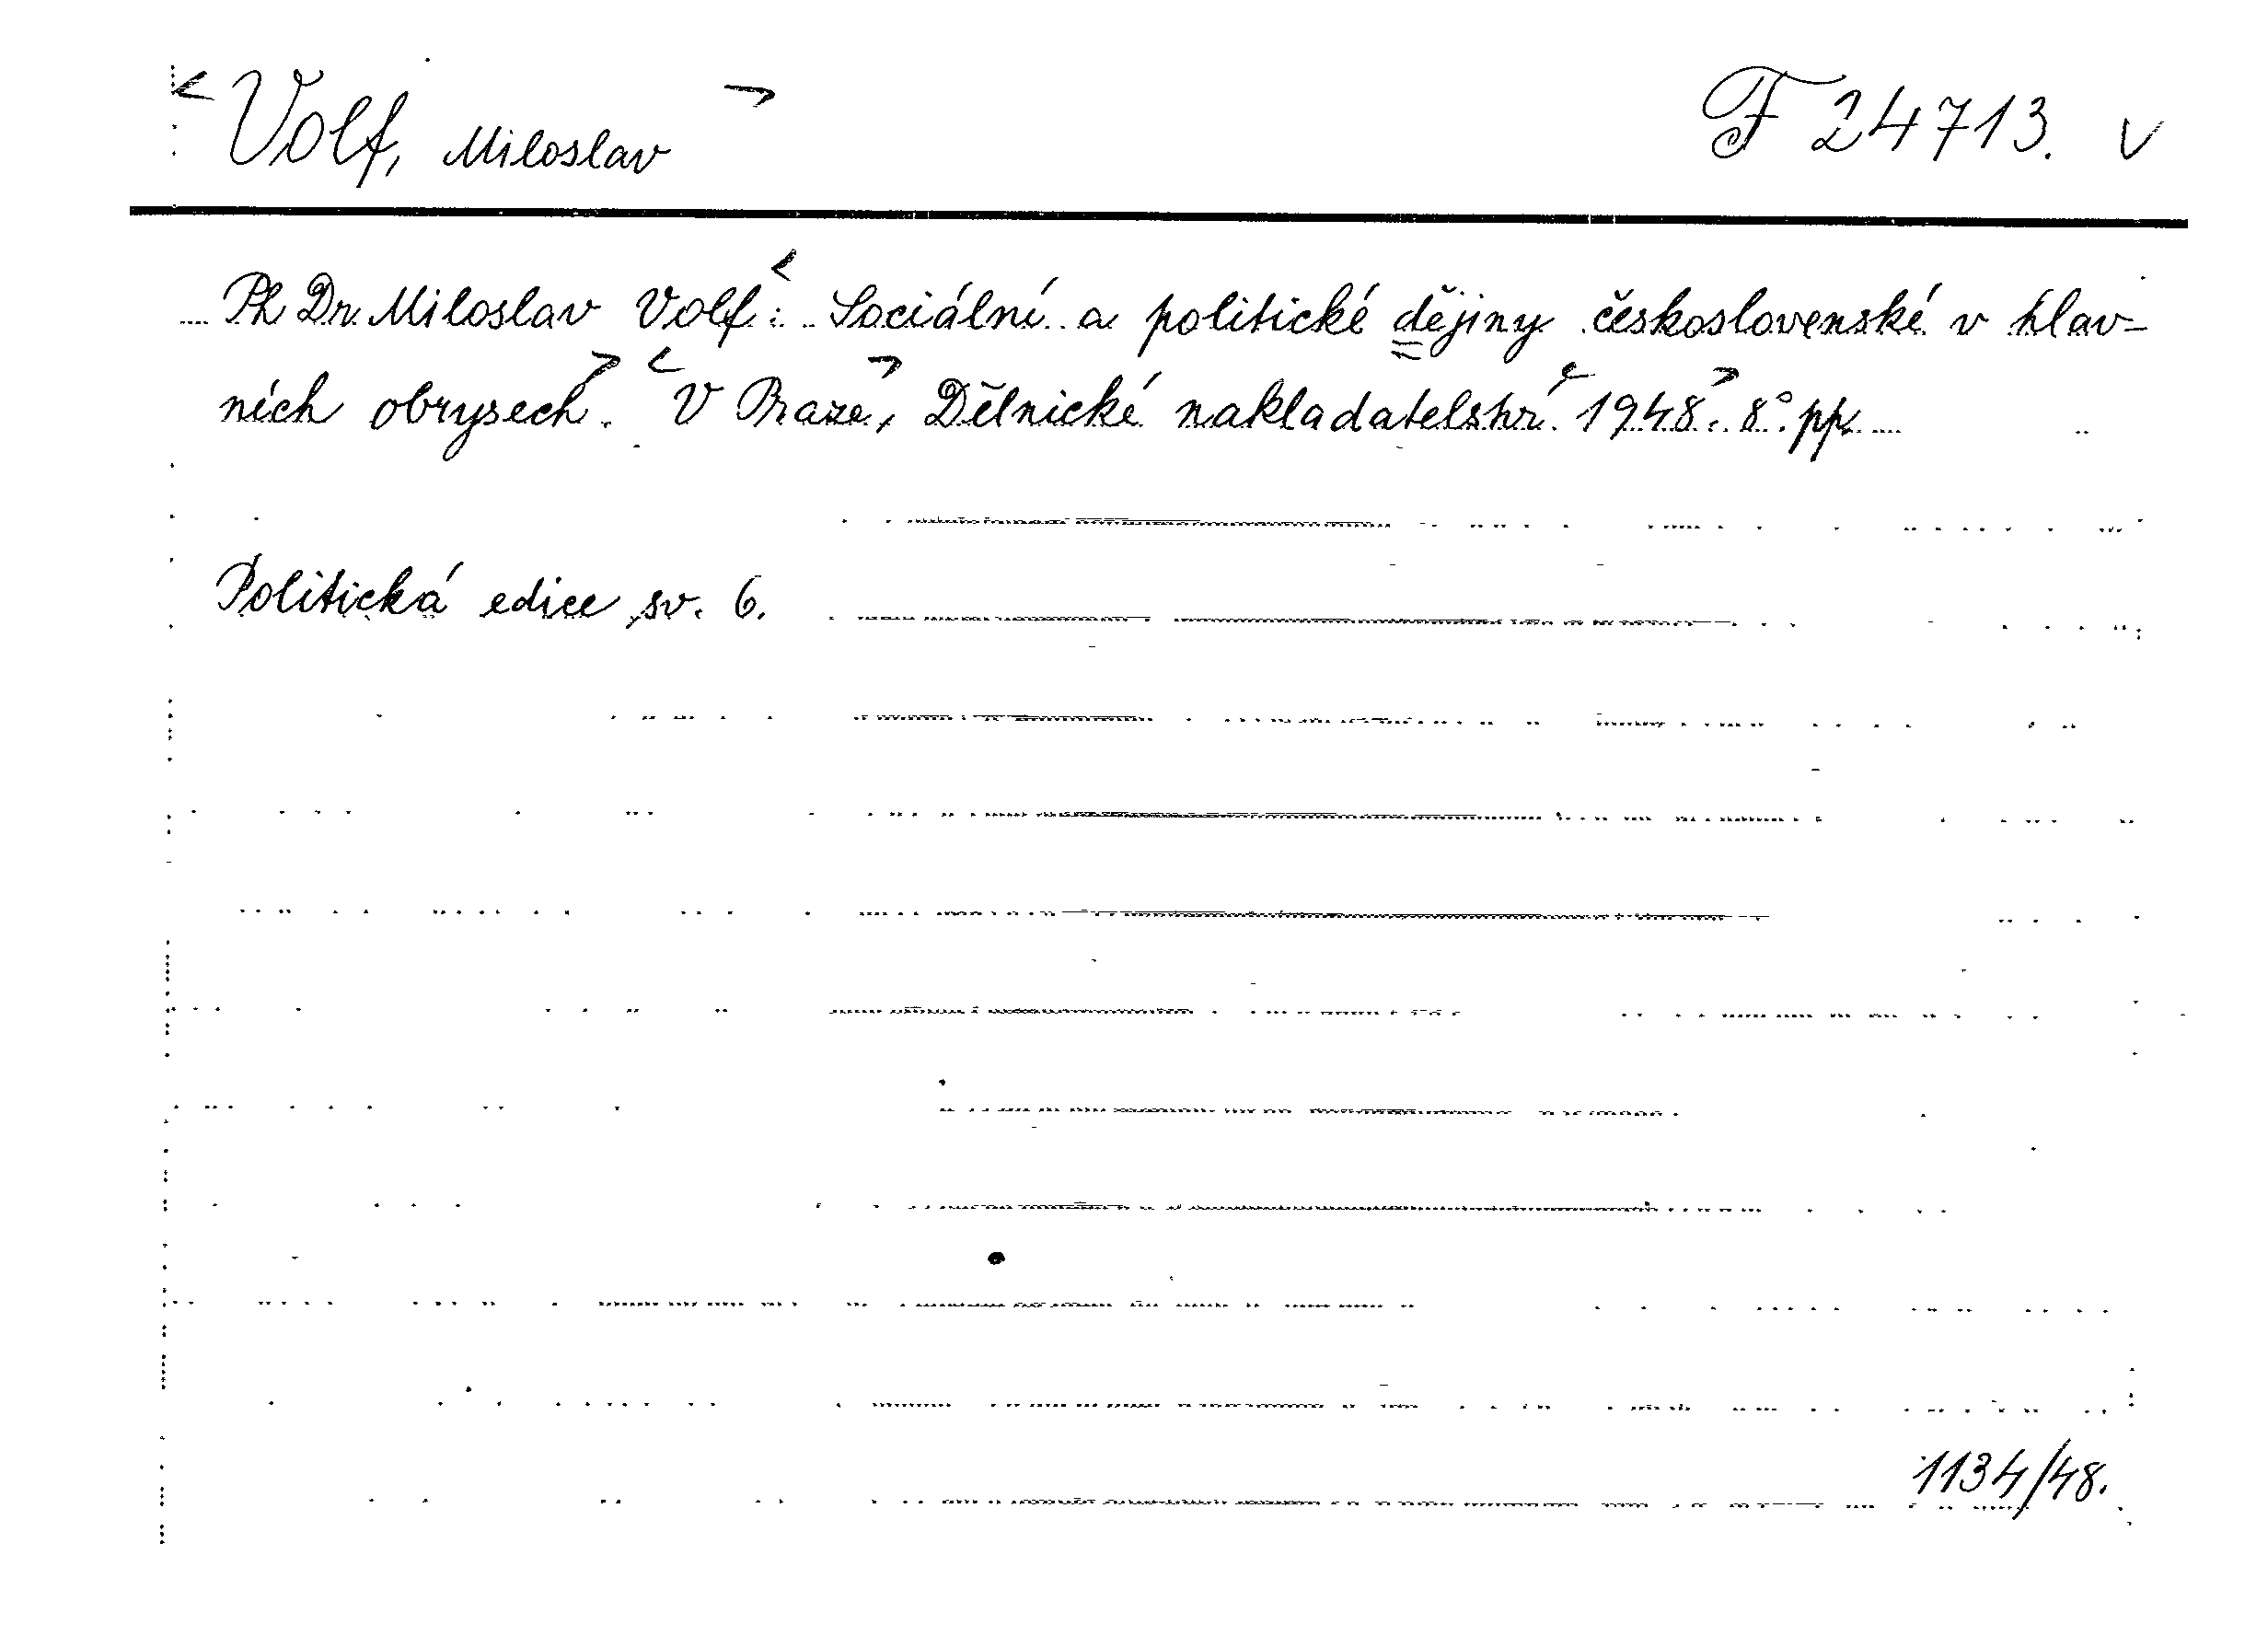 Volf, Miloslav F 24713. v
Ph Dr. Miloslav Volf: Sociální a politické dějiny československé v hlav-
ních obrysech. V Praze, Dělnické nakladatelství 1948. 8°. pp.
Politická edice sv. 6.
1134/48.